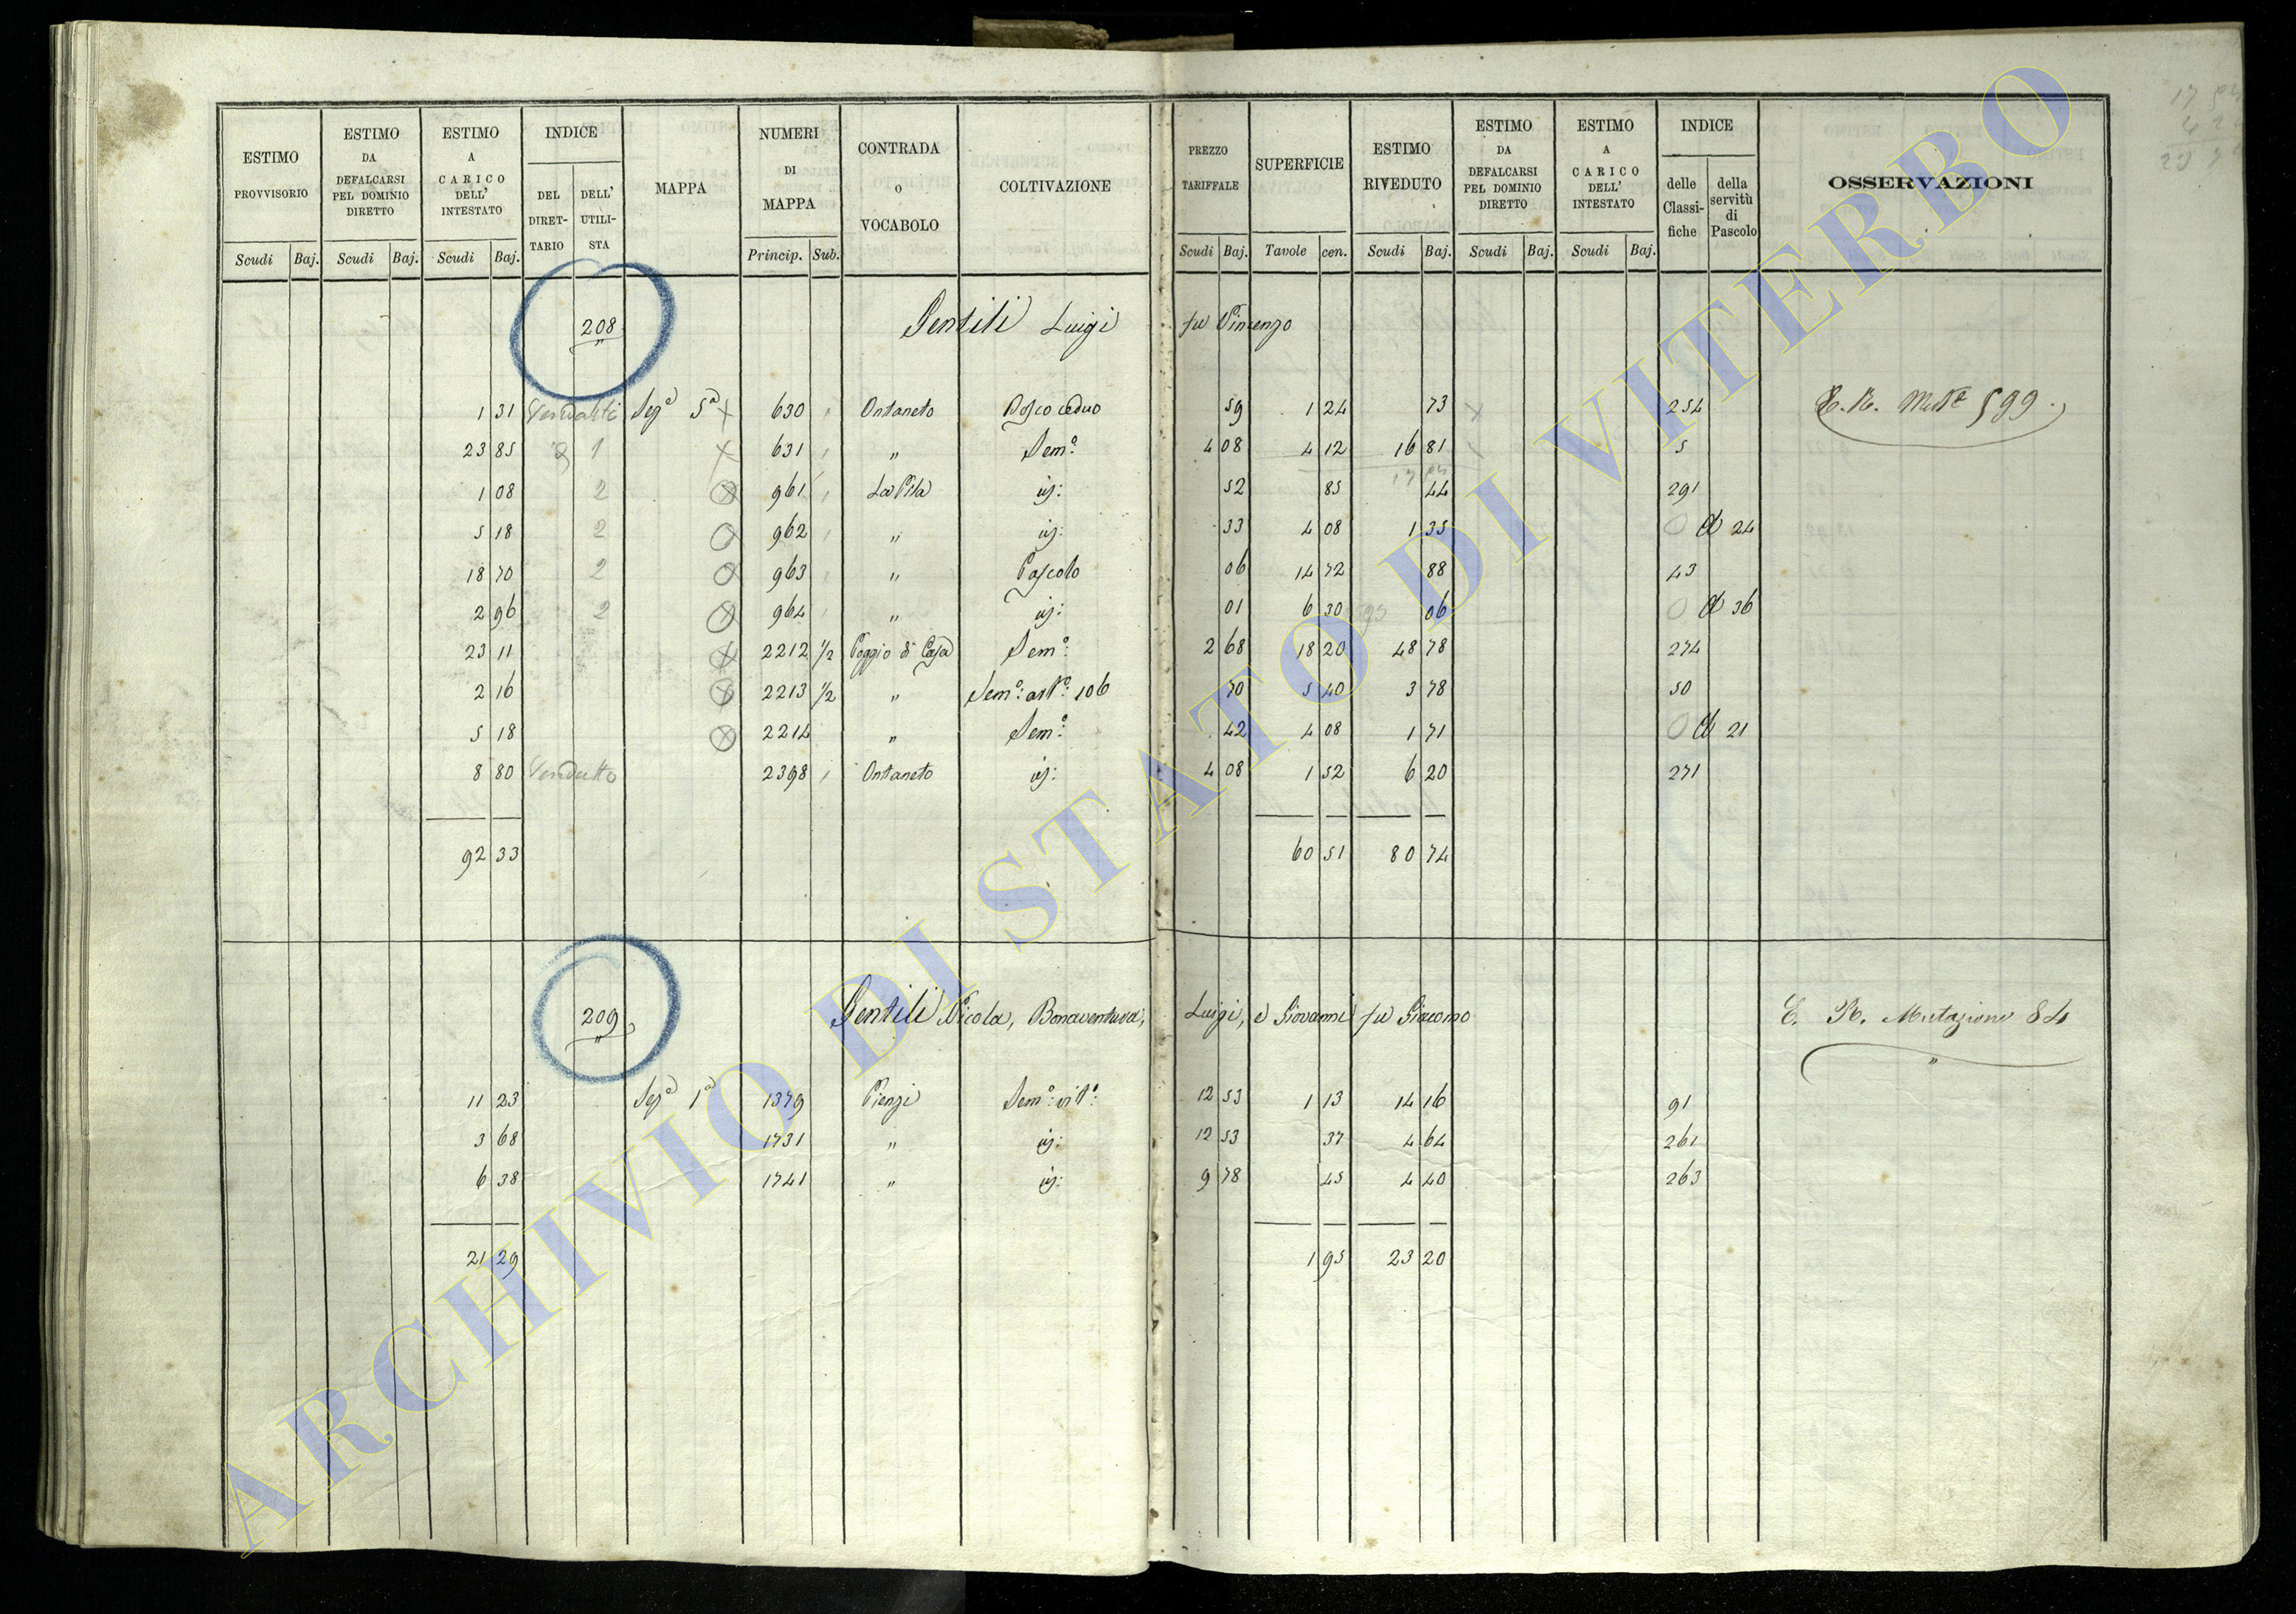 ESTIMO PROVVISORIO | ESTIMO DA DEFALCARSI PEL DOMINIO DIRETTO | ESTIMO A CARICO DELL' INTESTATO | INDICE | MAPPA | NUMERI DI MAPPA | CONTRADA o VOCABOLO | COLTIVAZIONE | PREZZO TARIFFALE | SUPERFICIE | ESTIMO RIVEDUTO | ESTIMO DA DEFALCARSI PEL DOMINIO DIRETTO | ESTIMO A CARICO DELL' INTESTATO | INDICE | OSSERVAZIONI
DEL DIRETTARIO | DELL' UTILISTA | delle Classifiche | della servitù di Pascolo
Scudi Baj. | Scudi Baj. | Scudi Baj. | Princip. Sub. | Scudi Baj. | Tavole cen. | Scudi Baj. | Scudi Baj. | Scudi Baj.
208 Gentili Luigi fu Vincenzo
1 31 Sez.e 5a 630 Ontaneto Bosco ceduo 59 1 24 73 254 E. R. 599
23 85 1 631 " Sem.o 4 08 4 12 16 81 5
1 08 2 961 La Pila id: 52 85 44 291
5 18 2 962 " id: 33 4 08 1 35 24
18 70 2 963 " Pascolo 06 14 72 88 43
2 96 2 964 " id: 01 6 30 06 36
23 11 2212 1/2 Poggio di Casa Sem.o 2 68 18 20 48 78 274
2 16 2213 1/2 " Sem.o 106 70 5 40 3 78 50
5 18 2214 " Sem.o 42 4 08 1 71 21
8 80 Venduto 2398 Ontaneto id: 4 08 1 52 6 20 271
92 33 60 51 80 74
209 Gentili Nicola, Bonaventura, Luigi, e Giovanni fu Giacomo E. R. Mutazione 84
11 23 Sez.e 1a 1379 Pienzi Sem.o vit.o 12 53 1 13 14 16 91
3 68 1731 " id: 12 53 37 4 64 261
6 38 1741 " id: 9 78 45 4 40 263
21 29 1 95 23 20
ARCHIVIO DI STATO DI VITERBO